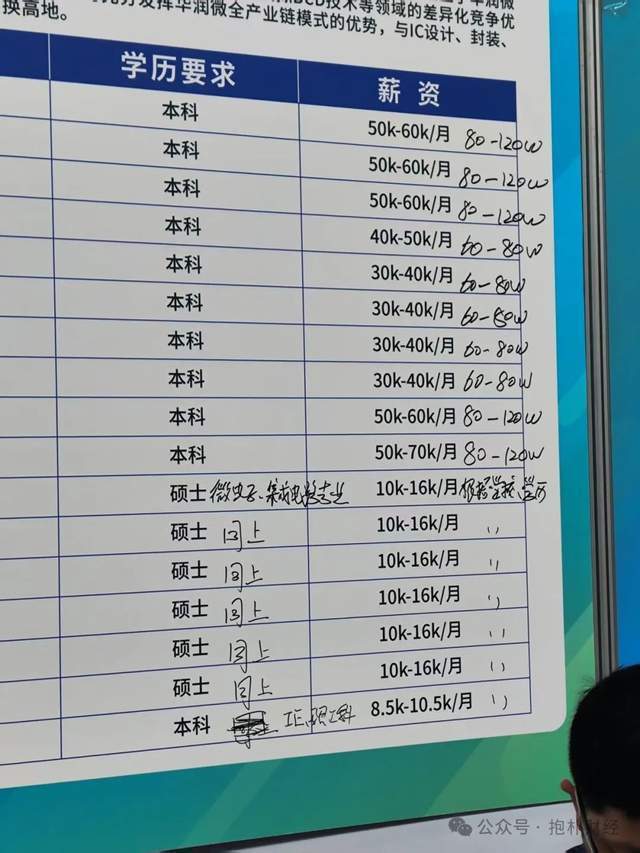 BCD技术等领域的差异化竞争优
发挥华润微全产业链模式的优势，与IC设计、封装、
换高地。
学历要求 薪资
本科 50k-60k/月 80-120W
本科 50k-60k/月 80-120W
本科 50k-60k/月 80-120W
本科 40k-50k/月 60-80W
本科 30k-40k/月 60-80W
本科 30k-40k/月 60-80W
本科 30k-40k/月 60-80W
本科 30k-40k/月 60-80W
本科 50k-60k/月 80-120W
本科 50k-70k/月 80-120W
硕士 微电子、集成电路专业 10k-16k/月 根据学校、学历
硕士 同上 10k-16k/月 ,,
硕士 同上 10k-16k/月 ,,
硕士 同上 10k-16k/月 ,,
硕士 同上 10k-16k/月 ,,
硕士 同上 10k-16k/月 ,,
本科 8.5k-10.5k/月 ,,
公众号·抱朴财经